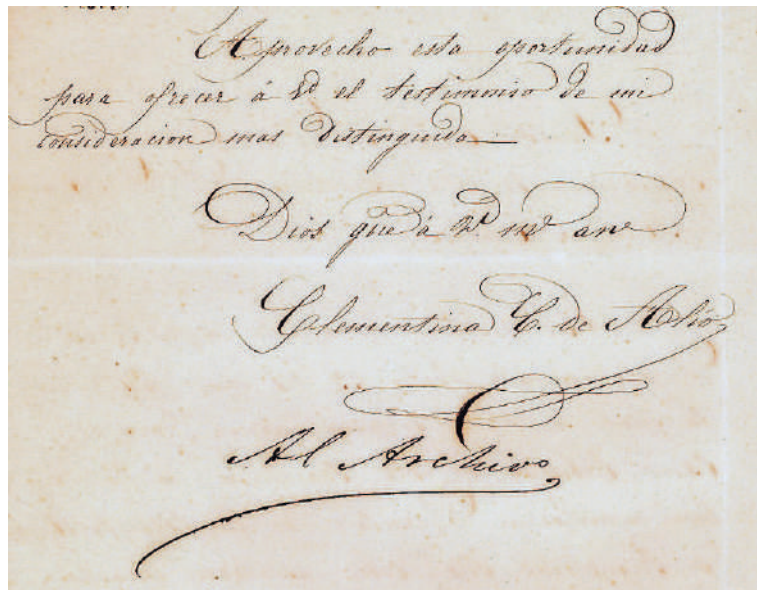 Aprovecho esta oportunidad
para ofrecer á Vd el testimonio de mi
consideracion mas distinguida
Dios gue á Vd ms as
Clementina C. de Alió
Al Archivo